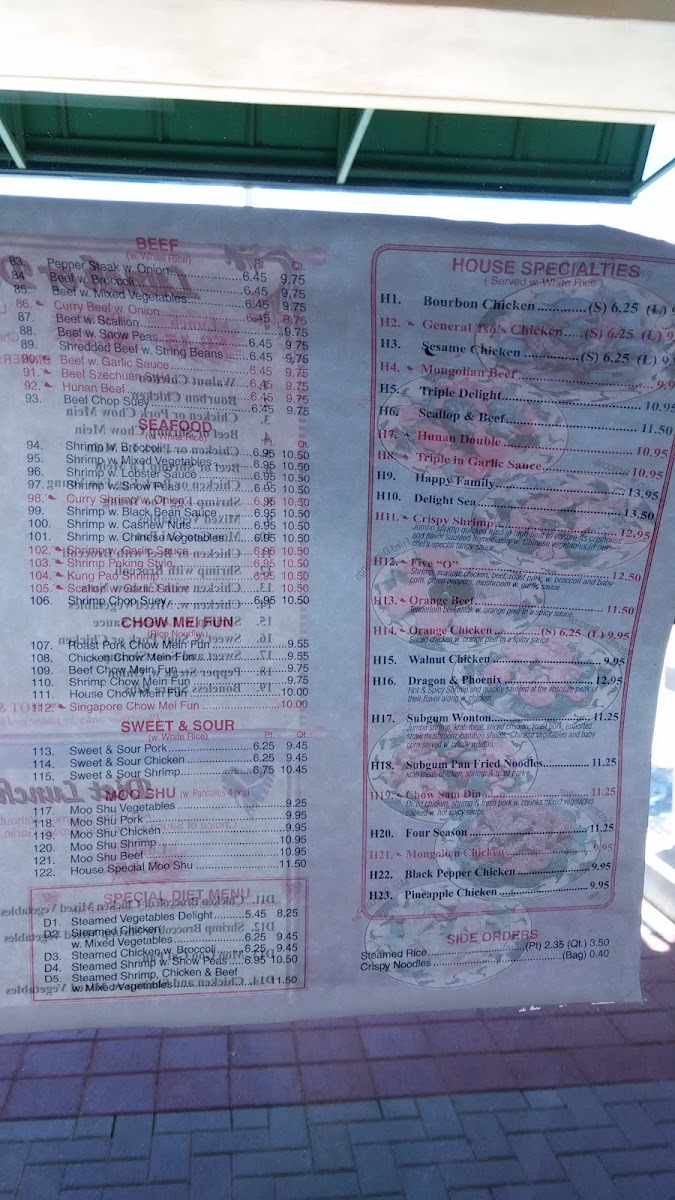 BEEF
(w. White Rice)
Pt. Qt.
83. Pepper Steak w. Onion
84. Beef w. Broccoli 6.45 9.75
85. Beef w. Mixed Vegetables 6.45 9.75
86. Curry Beef w. Onion 6.45 9.75
87. Beef w. Scallion 6.45 9.75
88. Beef w. Snow Peas 9.75
89. Shredded Beef w. String Beans 6.45 9.75
90. Beef w. Garlic Sauce 6.45 9.75
91. Beef Szechuan Style 9.75
92. Hunan Beef 9.75
93. Beef Chop Suey 6.45 9.75
SEAFOOD
(w. White Rice)
Qt.
94. Shrimp w. Broccoli 6.95 10.50
95. Shrimp w. Mixed Vegetables 6.95 10.50
96. Shrimp w. Lobster Sauce 6.95 10.50
97. Shrimp w. Snow Peas 6.95 10.50
98. Curry Shrimp w. Onion 6.95 10.50
99. Shrimp w. Black Bean Sauce 6.95 10.50
100. Shrimp w. Cashew Nuts 6.95 10.50
101. Shrimp w. Chinese Vegetables 6.95 10.50
102. Shrimp w. Garlic Sauce 6.95 10.50
103. Shrimp Puking Style 6.95 10.50
104. Kung Pao Shrimp 6.95 10.50
105. Scallop w. Garlic Sauce 6.95 10.50
106. Shrimp Chop Suey 6.95 10.50
CHOW MEI FUN
(Rice Noodles)
107. Roast Pork Chow Mein Fun 9.55
108. Chicken Chow Mein Fun 9.55
109. Beef Chow Mein Fun 9.75
110. Shrimp Chow Mein Fun 9.75
111. House Chow Mein Fun 10.00
112. Singapore Chow Mei Fun 10.00
SWEET & SOUR
(w. White Rice) Pt. Qt.
113. Sweet & Sour Pork 6.25 9.45
114. Sweet & Sour Chicken 6.25 9.45
115. Sweet & Sour Shrimp 6.75 10.45
MOO SHU (w. Pancakes 4 pcs)
117. Moo Shu Vegetables 9.25
118. Moo Shu Pork 9.95
119. Moo Shu Chicken 9.95
120. Moo Shu Shrimp 10.95
121. Moo Shu Beef 9.95
122. House Special Moo Shu 11.50
SPECIAL DIET MENU
D1. Steamed Vegetables Delight 5.45 8.25
D2. Steamed Chicken
w. Mixed Vegetables 6.25 9.45
D3. Steamed Chicken w. Broccoli 6.25 9.45
D4. Steamed Shrimp w. Snow Peas 6.95 10.50
D5. Steamed Shrimp, Chicken & Beef
w. Mixed Vegetables 11.50
HOUSE SPECIALTIES
( Served w. White Rice )
H1. Bourbon Chicken (S) 6.25 (L) 9
H2. General Tso's Chicken (S) 6.25 (L) 9
H3. Sesame Chicken (S) 6.25 (L) 9.
H4. Mongolian Beef 9.9
H5. Triple Delight 10.95
H6. Scallop & Beef 11.50
H7. Hunan Double 10.95
H8. Triple in Garlic Sauce 10.95
H9. Happy Family 13.95
H10. Delight Sea 13.50
H11. Crispy Shrimp 12.95
H12. Five "O" 12.50
Shrimp, scallops, chicken, beef, roast pork, w. broccoli and baby
corn, green peppers, mushroom w. garlic sauce.
H13. Orange Beef 11.50
Tenderloin beefsteak w. orange peel in a spicy sauce.
H14. Orange Chicken (S) 6.25 (L) 9.95
Sliced chicken w. orange peel in a spicy sauce.
H15. Walnut Chicken 9.95
H16. Dragon & Phoenix 12.95
Hot & Spicy Shrimp and quickly sautéed at the absolute peak of
their flavor along w. chicken.
H17. Subgum Wonton 11.25
Jumbo shrimp, krab meat, sliced chicken, roast pork, imported
straw mushroom, bamboo shoots, Chinese vegetables and baby
corn served w. crispy wonton.
H18. Subgum Pan Fried Noodles 11.25
Krab meat, chicken, shrimp & roast pork.
H19. Chow Sam Din 11.25
Diced chicken, shrimp & fresh pork w. chunks mixed vegetables
cooked w. hot spicy sauce.
H20. Four Season 11.25
H21. Mongolian Chicken 9.95
H22. Black Pepper Chicken 9.95
H23. Pineapple Chicken 9.95
SIDE ORDERS
Steamed Rice (Pt) 2.35 (Qt.) 3.50
Crispy Noodles (Bag) 0.40